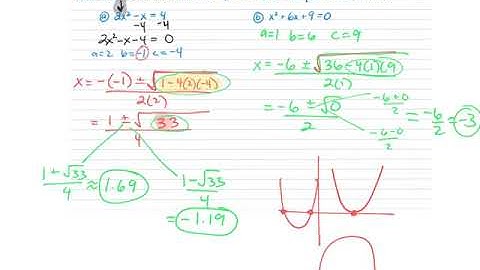 ⓐ 2x² - x = 4
-4 -4
2x² - x - 4 = 0
a=2 b=-1 c=-4
x = -(-1) ± √(1-4(2)(-4))
2(2)
= 1 ± √33
4
1+√33
4
≈ 1.69
1-√33
4
= -1.19
ⓑ x² + 6x + 9 = 0
a=1 b=6 c=9
x = -6 ± √(36-4(1)(9)
2(1)
= -6 ± √0
2
-6+0
2
-6-0
2
= -6
2
= -3